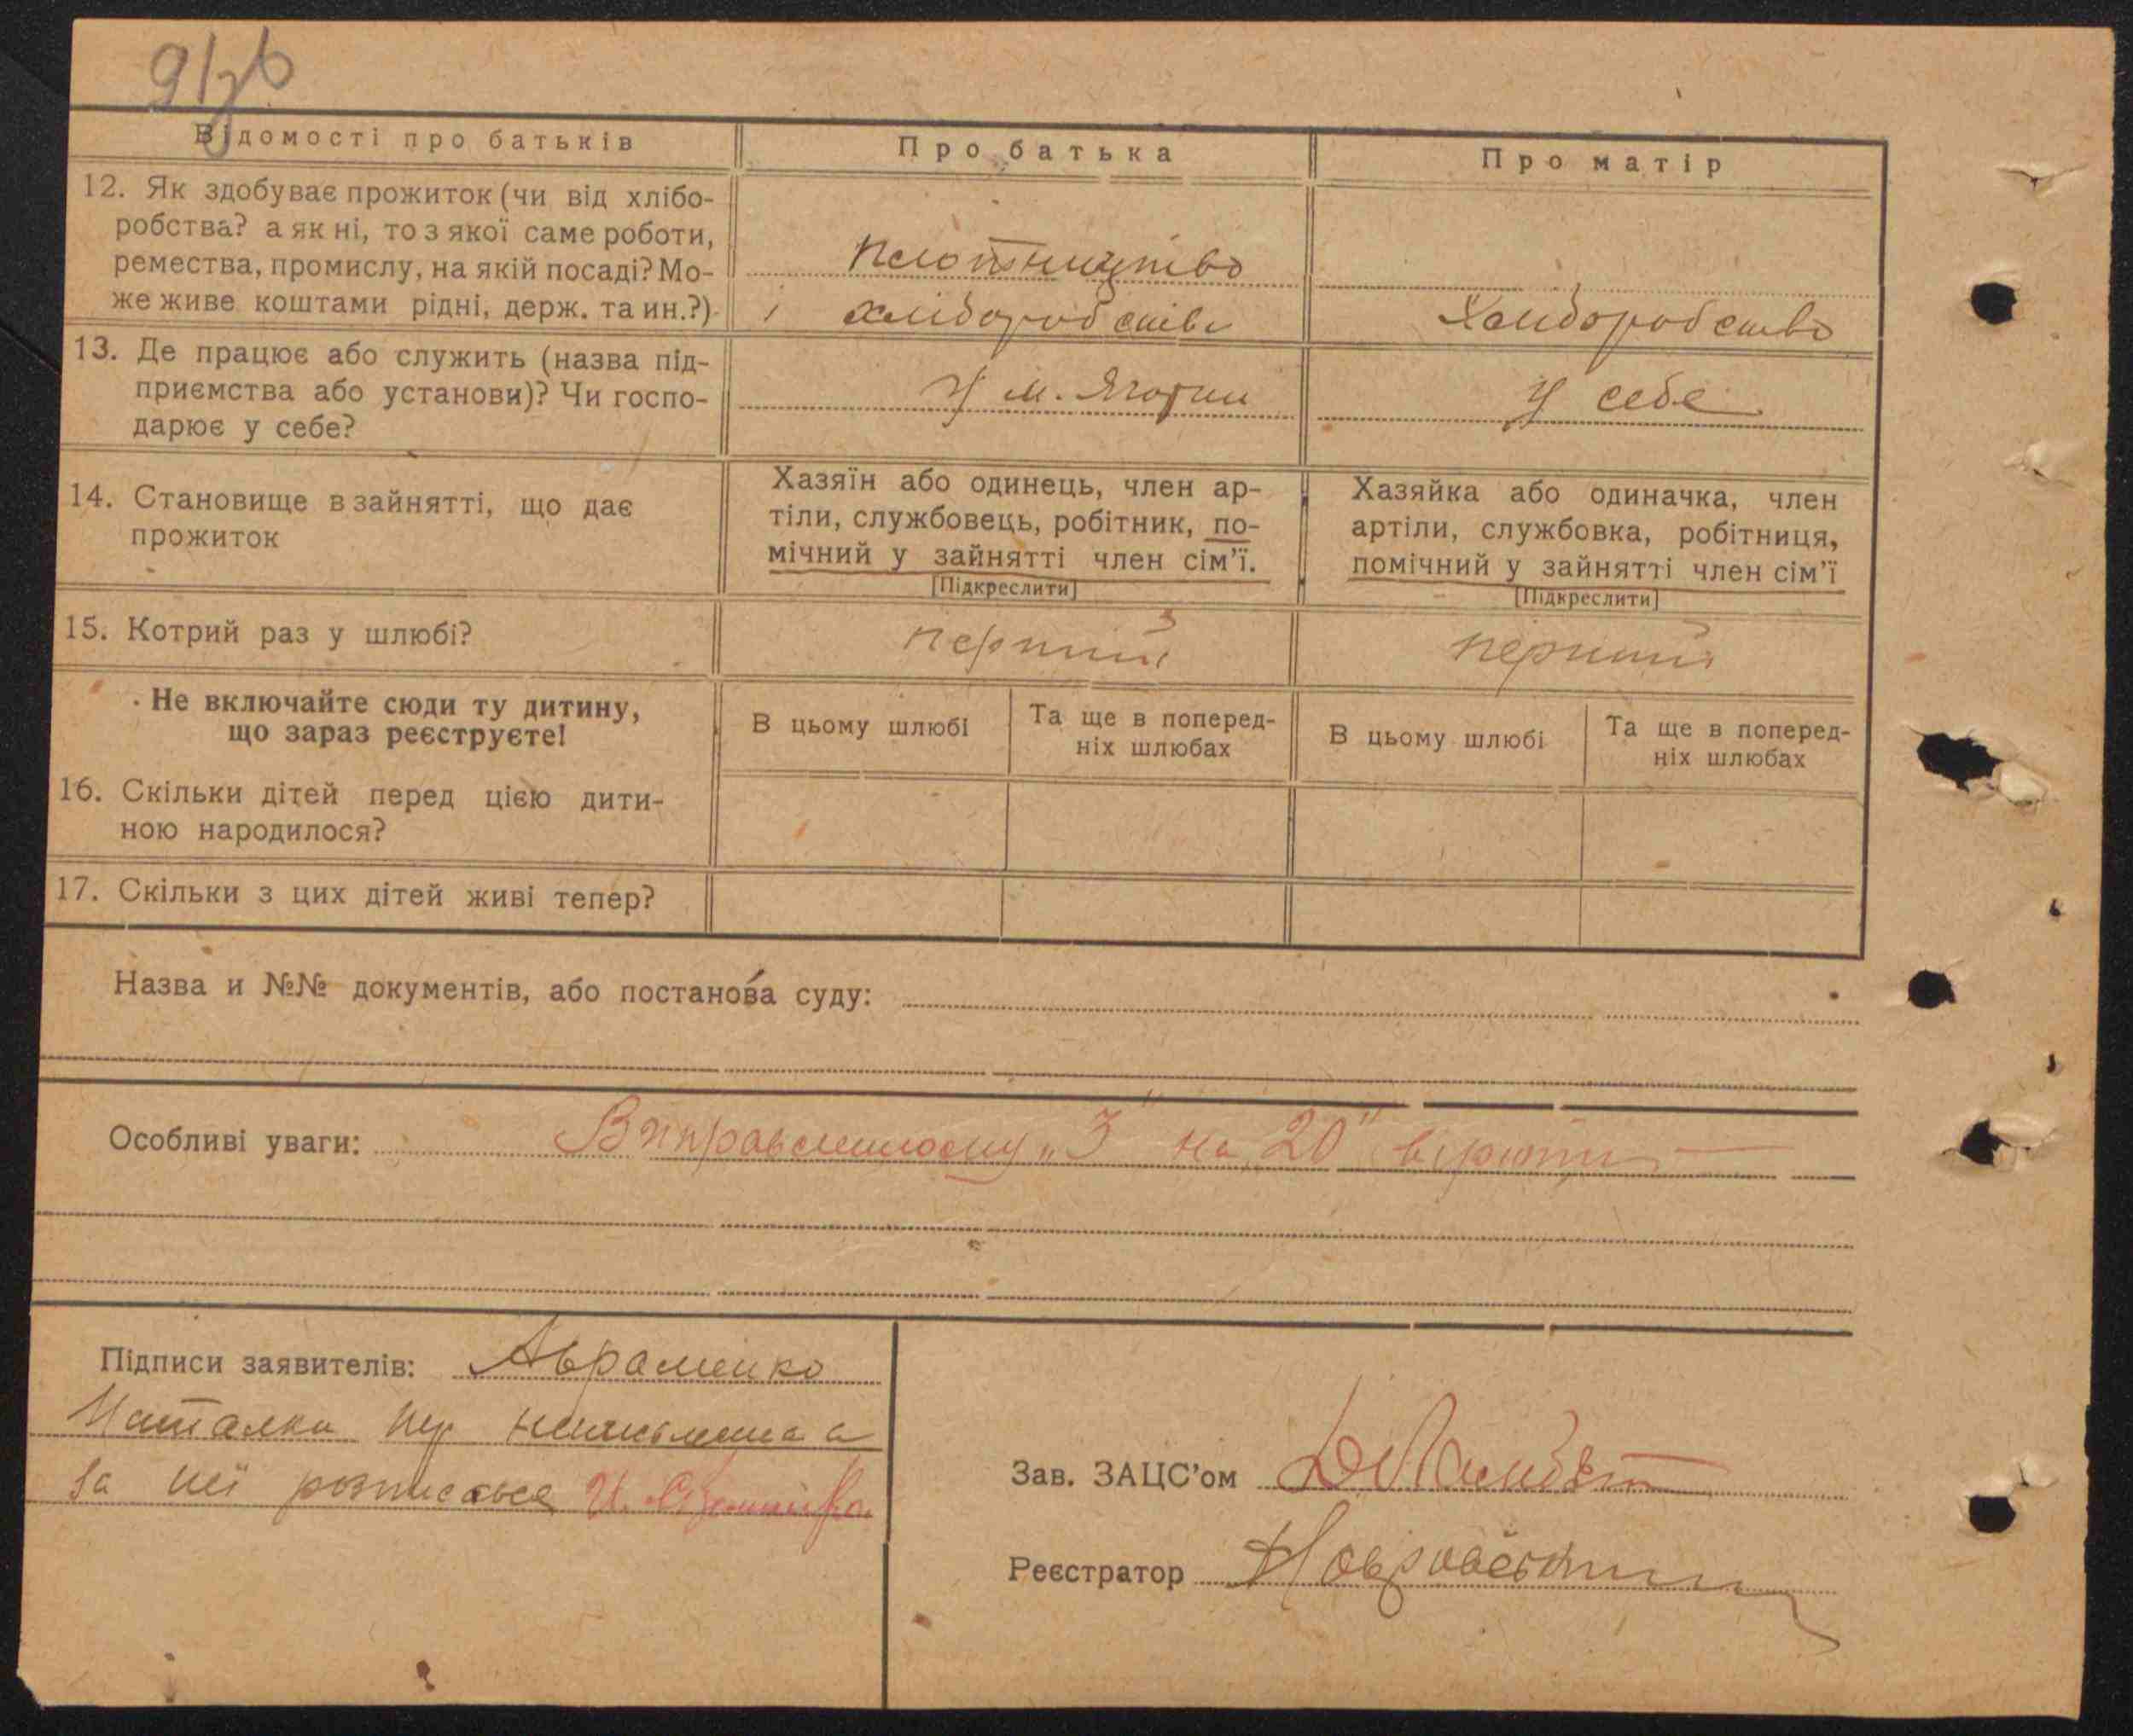 Відомості про батьків
Про батька
Про матір
12. Як здобуває прожиток (чи від хлібо-
робства? а як ні, то з якої саме роботи,
ремества, промислу, на якій посаді? Мо-
же живе коштами рідні, держ. та ин.?)
плотництво
і хліборобство
Хліборобство
13. Де працює або служить (назва під-
приємства або установи)? Чи госпо-
дарює у себе?
У м. Яготин
У себе
14. Становище в зайнятті, що дає
прожиток
Хазяїн або одинець, член ар-
тіли, службовець, робітник, по-
мічний у зайнятті член сім'ї.
[Підкреслити]
Хазяйка або одиначка, член
артіли, службовка, робітниця,
помічний у зайнятті член сім'ї
[Підкреслити]
15. Котрий раз у шлюбі?
перший
перший
Не включайте сюди ту дитину,
що зараз реєструєте!
В цьому шлюбі
Та ще в поперед-
ніх шлюбах
В цьому шлюбі
Та ще в поперед-
ніх шлюбах
16. Скільки дітей перед цією дити-
ною народилося?
17. Скільки з цих дітей живі тепер?
Назва и №№ документів, або постанова суду:
Особливі уваги: Виправленному „3" на „20" вірити
Підписи заявителів: Авраменко
Наталка неписьменна а
за неї розписався
Зав. ЗАЦС'ом
Реєстратор